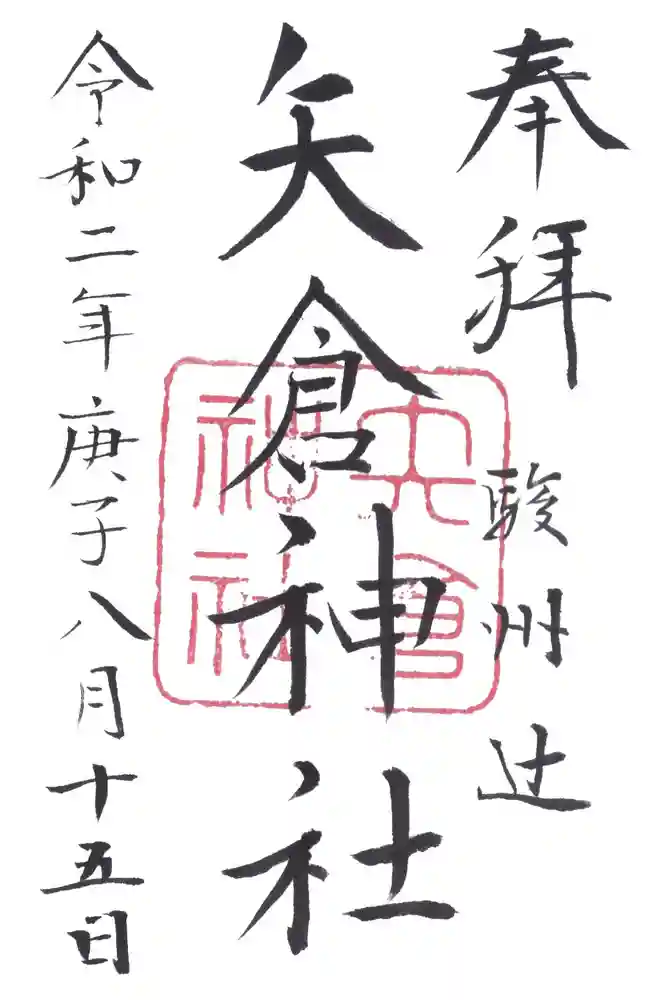 奉拝
駿州辻
矢倉神社
矢倉
神社
令和二年庚子八月十五日